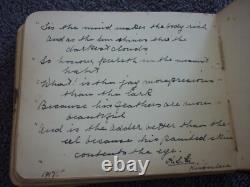 "Tis the mind makes the body rich
And as the sun shines thro the
darkest clouds
So honour peereth in the meanest
habit
"What" is the jay more precious
than the lark
"Because his feathers are more
beautiful
"And is the adder better than the
eel because his painted skin
contents the eye.
1917